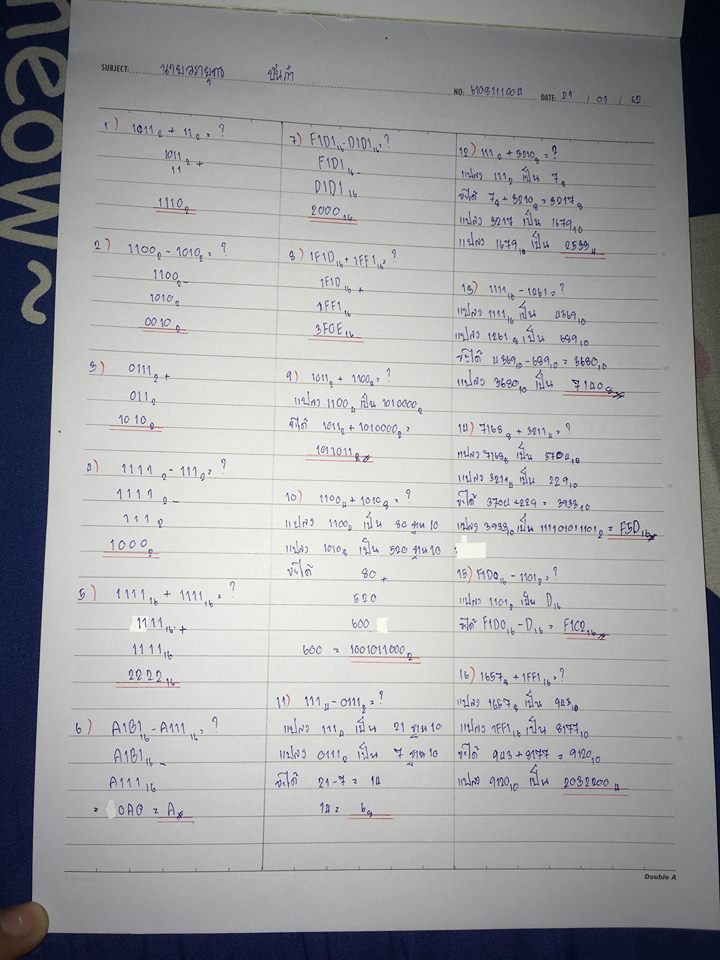 heow~
SUBJECT: นายวรายุทธ ปันคำ
NO: DATE: 29 / 01 / 62
1) 1011₂ + 11₂ = ?
1011₂ +
11
1110₂
2) 1100₂ - 1010₂ = ?
1100₂ -
1010₂
0010₂
3) 0111₂ +
011₂
1010₂
4) 1111₂ - 111₂ = ?
1111₂ -
111₂
1000₂
5) 1111₁₆ + 1111₁₆ = ?
1111₁₆ +
1111₁₆
2222₁₆
6) A1B1₁₆ - A111₁₆ = ?
A1B1₁₆ -
A111₁₆
= 0A0 = A
7) F1D1₁₆ - D1D1₁₆ = ?
F1D1₁₆ -
D1D1₁₆
2000₁₆
8) 1F1D₁₆ + 1FF1₁₆ = ?
1F1D₁₆ +
1FF1₁₆
3F0E₁₆
9) 1011₂ + 1100₄ = ?
แปลง 1100₄ เป็น 1010000₂
จะได้ 1011₂ + 1010000₂ =
1011011₂
10) 1100₄ + 1010₈ = ?
แปลง 1100₄ เป็น 80 ฐาน 10
แปลง 1010₈ เป็น 520 ฐาน 10
จะได้ 80 +
520
600
600 = 1001011000₂
11) 111₄ - 0111₂ = ?
แปลง 111₄ เป็น 21 ฐาน 10
แปลง 0111₂ เป็น 7 ฐาน 10
จะได้ 21 - 7 = 14
14 =
12) 111₂ + 3210₈ = ?
แปลง 111₂ เป็น 7₈
จะได้ 7₈ + 3210₈ = 3217₈
แปลง 3217 เป็น 1679₁₀
แปลง 1679₁₀ เป็น
13) 1111₁₆ - 1261 = ?
แปลง 1111₁₆ เป็น 4369₁₀
แปลง 1261₈ เป็น 689₁₀
จะได้ 4369₁₀ - 689₁₀ = 3680₁₀
แปลง 3680₁₀ เป็น 7140₈
14) 7168₈ + 3211₄ = ?
แปลง 7168₈ เป็น 3704₁₀
แปลง 3211₄ เป็น 229₁₀
จะได้ 3704 + 229 = 3933₁₀
แปลง 3933₁₀ เป็น 111101011101₂ = F5D₁₆
15) F1D0₁₆ - 1101₂ = ?
แปลง 1101₂ เป็น D₁₆
จะได้ F1D0₁₆ - D₁₆ = F1C2₁₆
16) 1657₈ + 1FF1₁₆ = ?
แปลง 1657₈ เป็น 943₁₀
แปลง 1FF1₁₆ เป็น 8177₁₀
จะได้ 943 + 8177 = 9120₁₀
แปลง 9120₁₀ เป็น 2032200₄
Double A